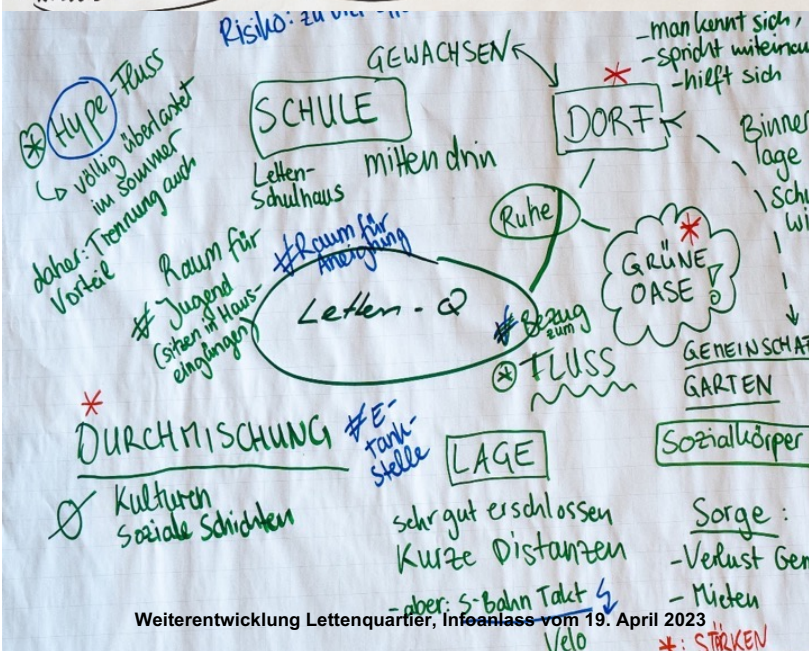 Risiko: zu viel
GEWACHSEN
- man kennt sich,
- spricht miteinau
- hilft sich
* Hype-Fluss
↳ völlig überlastet
im Sommer
daher: Trennung auch
Vorteil
SCHULE
Letten-
Schulhaus
mittendrin
* DORF
Binnen
lage
Schu
Wi
Ruhe
*
GRÜNE
OASE!
Raum für
# Jugend
(sitzen in Haus-
eingängen)
# Raum für
Aneignung
Letten-Q
# Bezug
zum
* FLUSS
GEMEINSCHAF
GARTEN
*
DURCHMISCHUNG
Ø Kulturen
Soziale Schichten
# E-
tank-
stelle
LAGE
sehr gut erschlossen
Kurze Distanzen
- aber: S-Bahn Takt
Velo
Sozialkörper
Sorge:
- Verlust Gen
- Mieten
*: STÄRKEN
Weiterentwicklung Lettenquartier, Infoanlass vom 19. April 2023